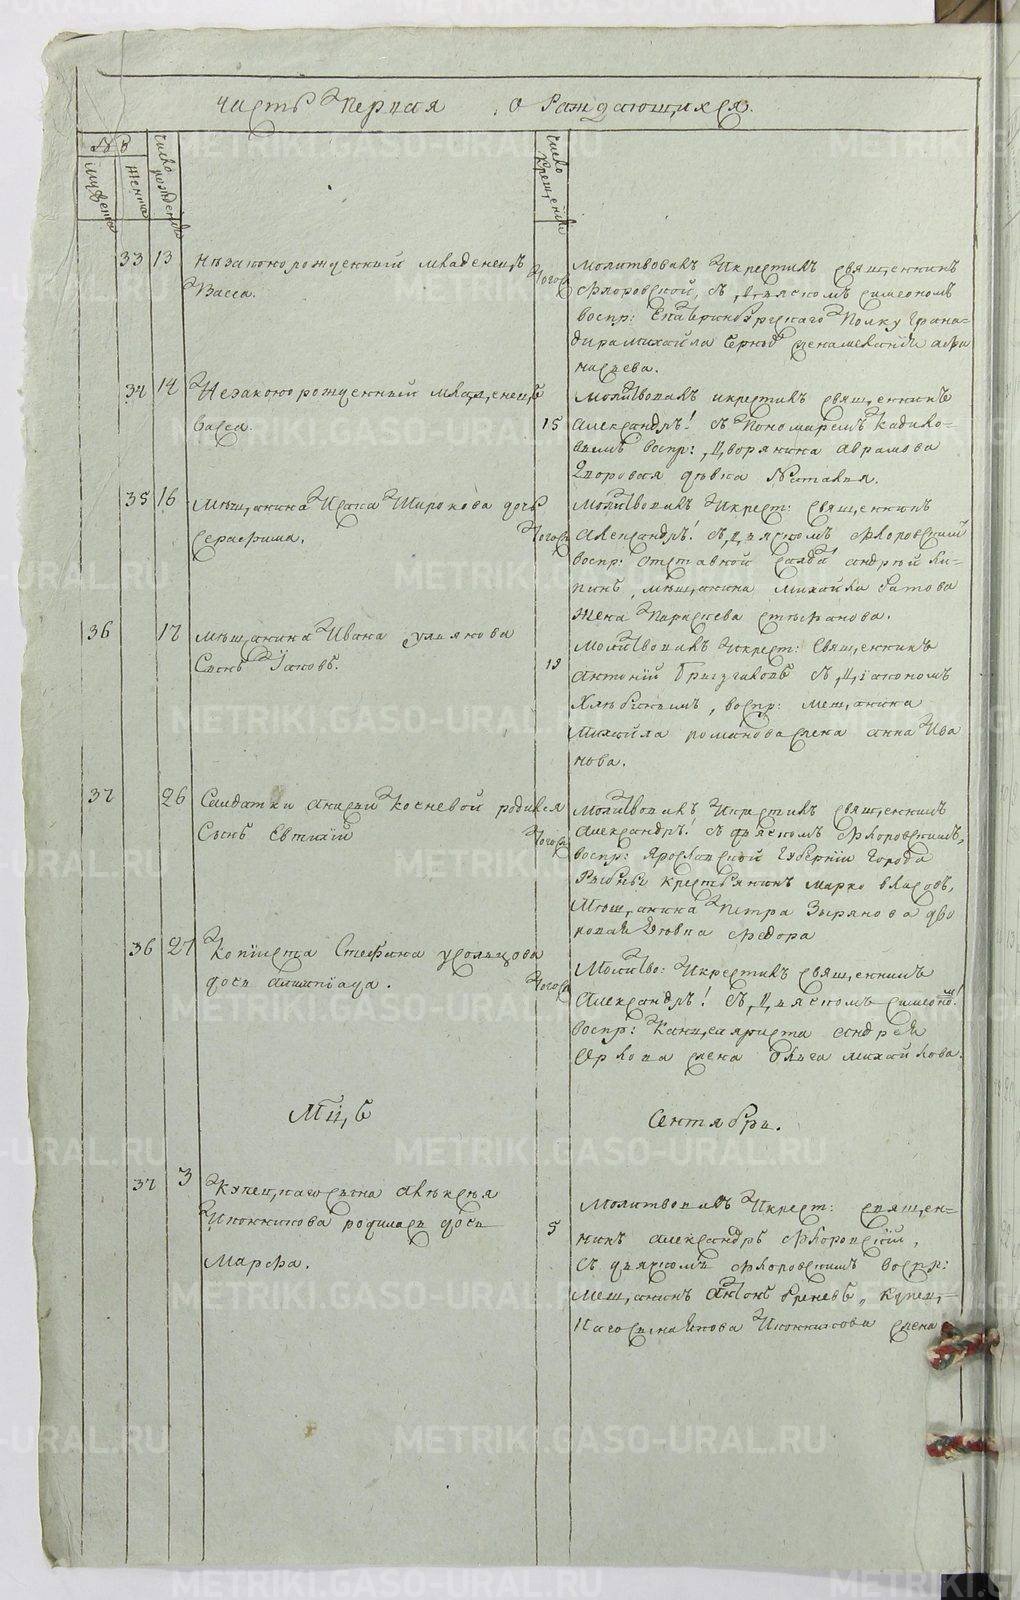 Часть Первая о Раждающихся
№ В
мужеска
женска
число рождения
число крещения
33 13 Незаконорожденный младенецъ
Васса.
тогож
молитвовалъ Икрестилъ священникъ
Флоровской, съ дьякономъ симеономъ
воспр: Екатеринбургскаго Полку Грана-
дира михайла жена
насьева.
34 14 Незаконорожденный младенецъ
васса.
15
молитвовалъ икрестилъ священникъ
Александръ! съ Пономаремъ Кадико-
вымъ воспр: дворянина аврамова
Дворовая девка Наталья.
35 16 мещанина Исака Широкова дочь
серафима.
тогож
молитвовалъ Икрест: священникъ
Александръ! съ дьякономъ Флоровским
воспр: отставной салдат андрей Ли-
пинъ, мещанина михайла батова
жена Параскева стефанова.
36 17 мещанина Ивана ульянова
Сынъ Іаковъ.
19
молитвовалъ Икрест: Священникъ
антоній съ діакономъ
Хлебинымъ, воспр: мещанина
михайла романова жена анна Ива
нова.
37 26 Салдатки анисьи Косневой родился
Сынъ Евтихій
тогож
молитвовалъ Икрестилъ священникъ
Александръ! съ дьякономъ Флоровскимъ,
воспр: Ярославской Губерніи Города
Рыбны крестьянинъ марко власовъ,
мещанина Петра Зырянова дво
ровая девка федора
36 27 Копіиста Стефана усольцова
дочь
тогож
Молитво: Икрестилъ священникъ
Александръ! съ дьякономъ симеоном!
воспр: Канцеляриста андрея
Орлова жена Ольга михайлова.
Мцъ Сентябрь.
37 3 Купецкаго сына алексея
Иконникова родилась дочь
Марфа.
5
Молитвовалъ Икрест: священ-
никъ александръ Флоровскій,
съ дьякономъ Флоровскимъ воспр:
мещанинъ антонъ бреневъ, купец-
каго сына Иконникова жена
METRIKI.GASO-URAL.RU